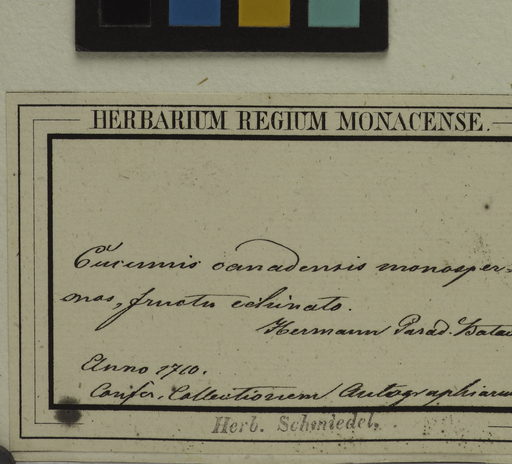 HERBARIUM REGIUM MONACENSE.
Cucumis canadensis monosper=
mos, fructu echinato.
Hermann Parad. Batav
Anno 1710.
Confer. Collectionem Autographiarum
Herb. Schmiedel.